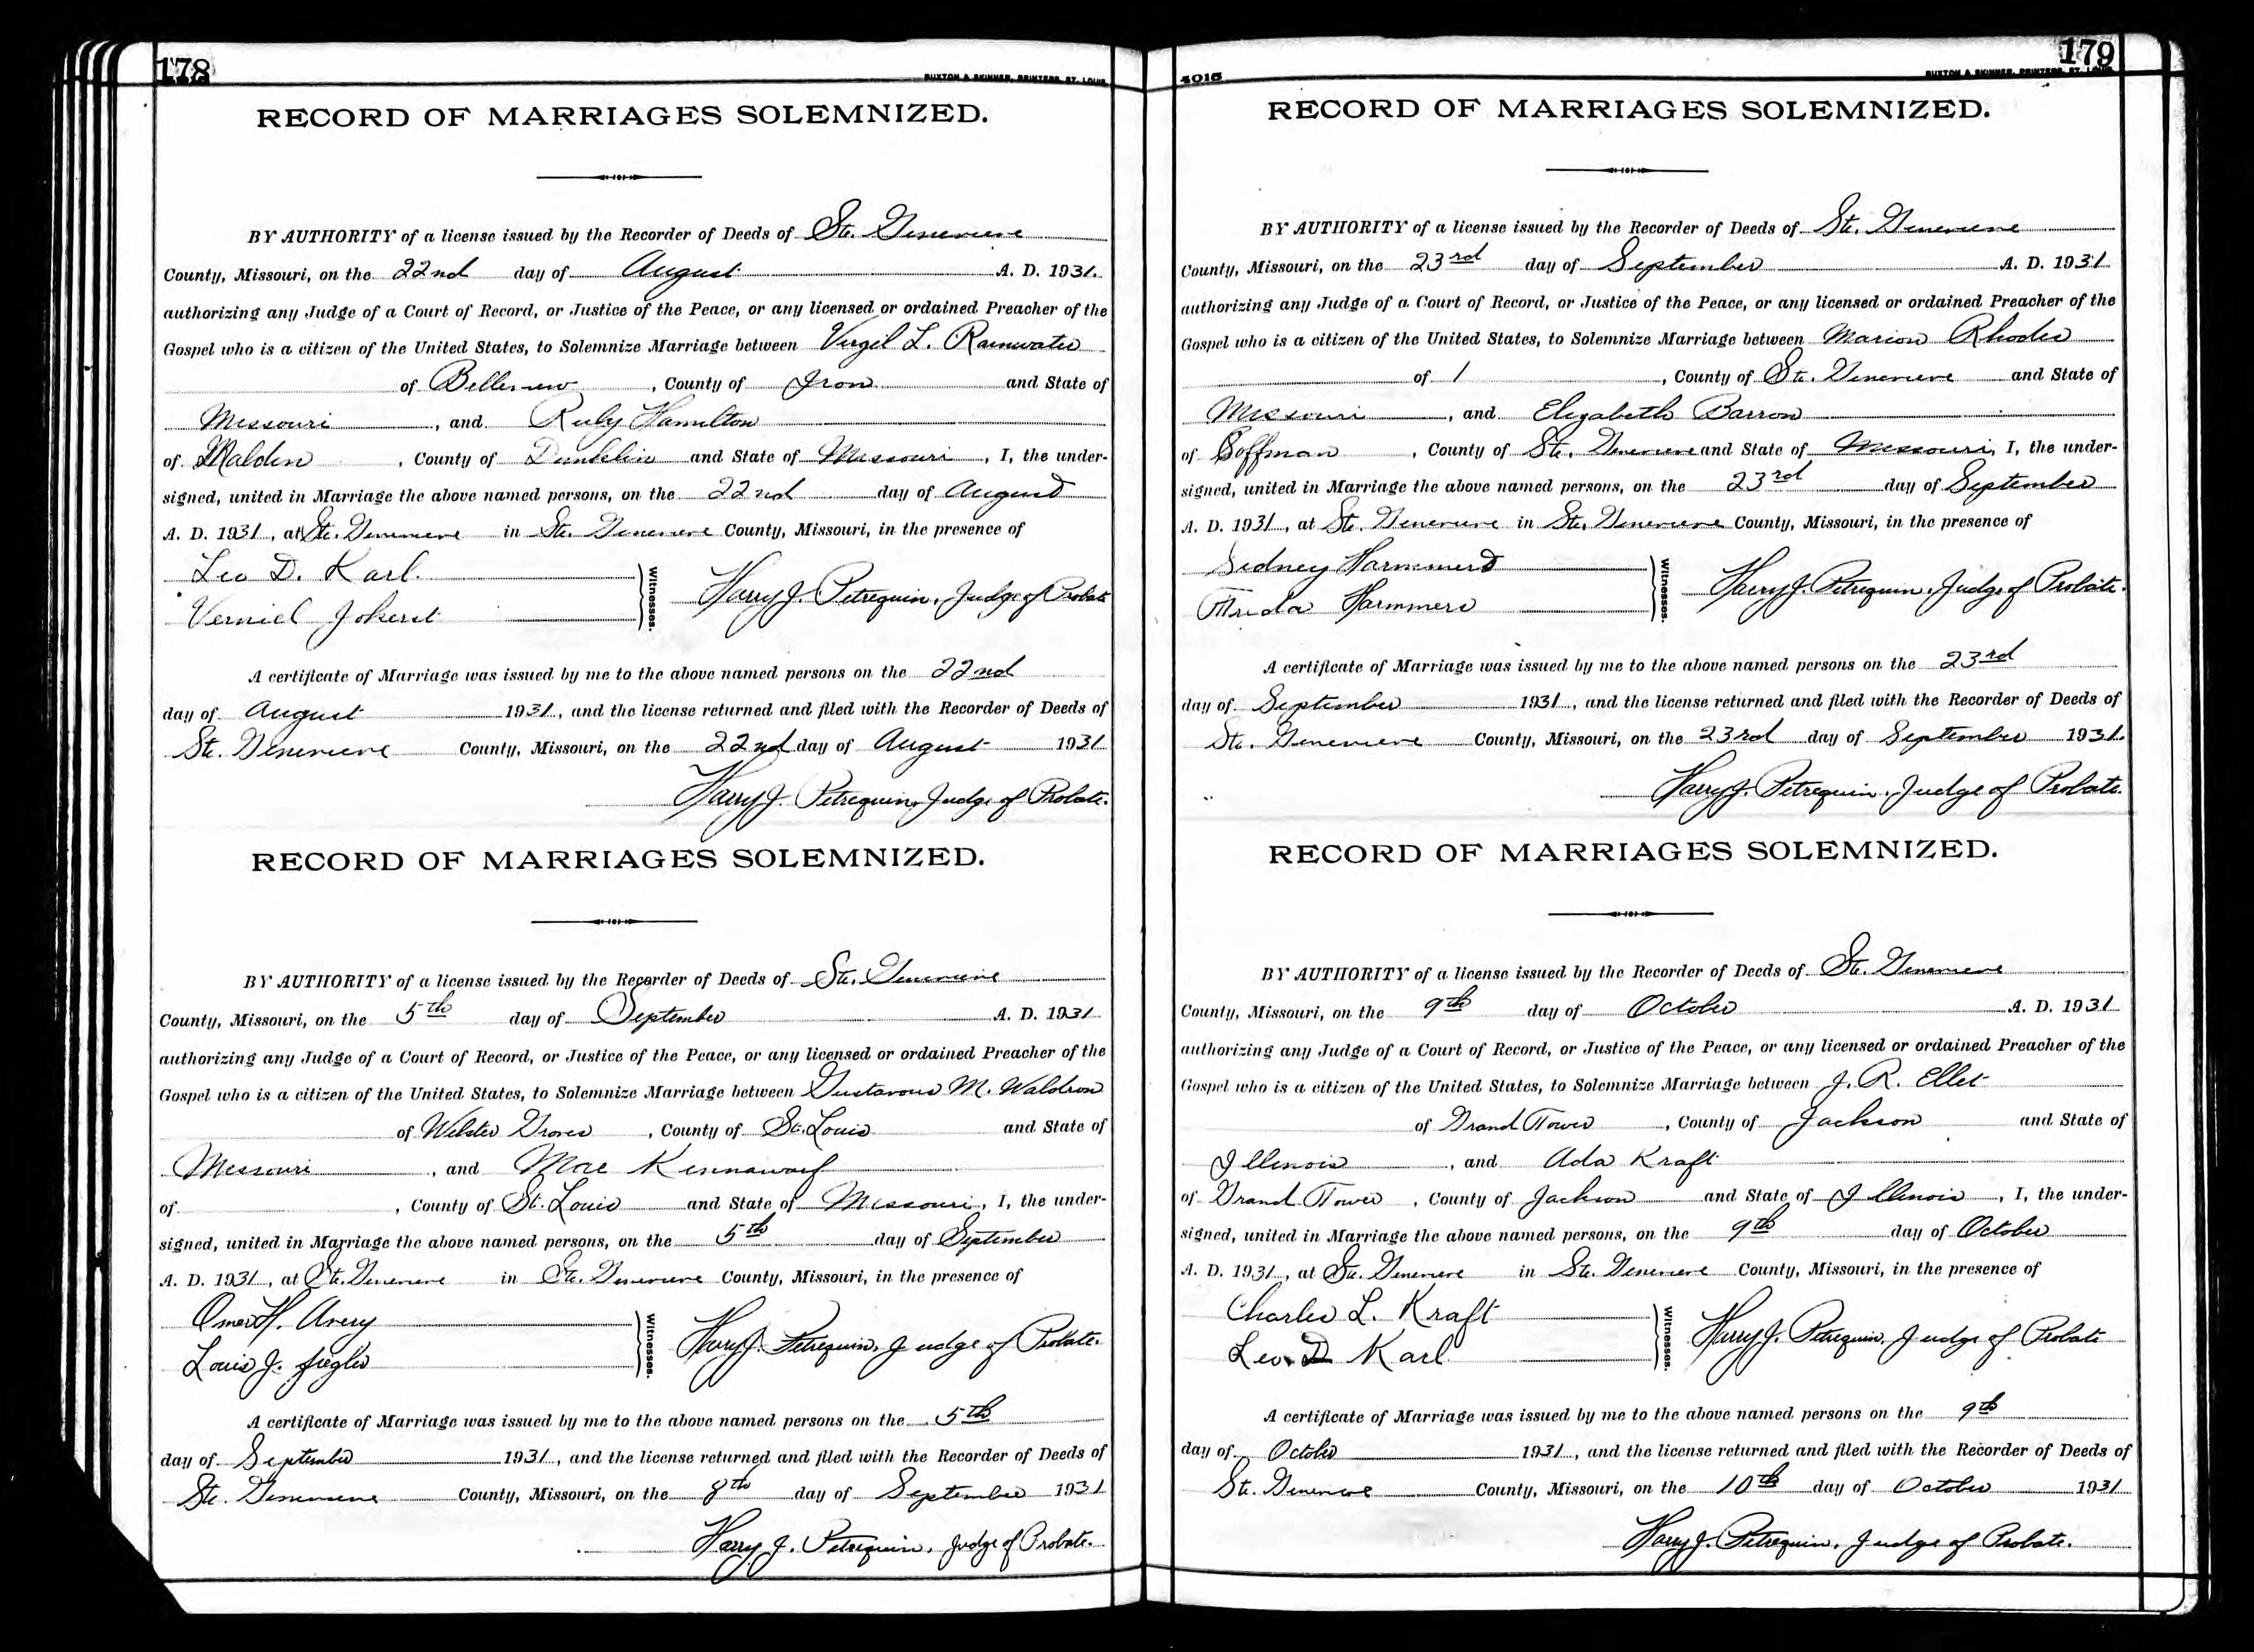 178
BUXTON & SKINNER, PRINTERS, ST. LOUIS
RECORD OF MARRIAGES SOLEMNIZED.
BY AUTHORITY of a license issued by the Recorder of Deeds of Ste. Genevieve
County, Missouri, on the 22nd day of August A. D. 1931.
authorizing any Judge of a Court of Record, or Justice of the Peace, or any licensed or ordained Preacher of the
Gospel who is a citizen of the United States, to Solemnize Marriage between Virgil L. Rainwater
of Belleview, County of Iron and State of
Missouri, and Ruby Hamilton
of Malden, County of Dunklin and State of Missouri, I, the under-
signed, united in Marriage the above named persons, on the 22nd day of August
A. D. 1931, at Ste. Genevieve in Ste. Genevieve County, Missouri, in the presence of
Leo D. Karl.
Verniel Jokerst
Witnesses.
Harry J. Petrequin, Judge of Probate
A certificate of Marriage was issued by me to the above named persons on the 22nd
day of August 1931, and the license returned and filed with the Recorder of Deeds of
Ste. Genevieve County, Missouri, on the 22nd day of August 1931
Harry J. Petrequin, Judge of Probate.
RECORD OF MARRIAGES SOLEMNIZED.
BY AUTHORITY of a license issued by the Recorder of Deeds of Ste. Genevieve
County, Missouri, on the 5th day of September A. D. 1931
authorizing any Judge of a Court of Record, or Justice of the Peace, or any licensed or ordained Preacher of the
Gospel who is a citizen of the United States, to Solemnize Marriage between Gustavous M. Waldron
of Webster Groves, County of St. Louis and State of
Missouri, and Mae
of , County of St. Louis and State of Missouri, I, the under-
signed, united in Marriage the above named persons, on the 5th day of September
A. D. 1931, at Ste. Genevieve in Ste. Genevieve County, Missouri, in the presence of
Omer H. Avery
Louis J. Ziegler
Witnesses.
Harry J. Petrequin, Judge of Probate.
A certificate of Marriage was issued by me to the above named persons on the 5th
day of September 1931, and the license returned and filed with the Recorder of Deeds of
Ste. Genevieve County, Missouri, on the 8th day of September 1931
Harry J. Petrequin, Judge of Probate.
4015
BUXTON & SKINNER, PRINTERS, ST. LOUIS
179
RECORD OF MARRIAGES SOLEMNIZED.
BY AUTHORITY of a license issued by the Recorder of Deeds of Ste. Genevieve
County, Missouri, on the 23rd day of September A. D. 1931
authorizing any Judge of a Court of Record, or Justice of the Peace, or any licensed or ordained Preacher of the
Gospel who is a citizen of the United States, to Solemnize Marriage between Marion Rhodes
of , County of Ste. Genevieve and State of
Missouri, and Elizabeth Barron
of Coffman, County of Ste. Genevieve and State of Missouri, I, the under-
signed, united in Marriage the above named persons, on the 23rd day of September
A. D. 1931, at Ste. Genevieve in Ste. Genevieve County, Missouri, in the presence of
Sidney
Witnesses.
Harry J. Petrequin, Judge of Probate.
A certificate of Marriage was issued by me to the above named persons on the 23rd
day of September 1931, and the license returned and filed with the Recorder of Deeds of
Ste. Genevieve County, Missouri, on the 23rd day of September 1931.
Harry J. Petrequin, Judge of Probate.
RECORD OF MARRIAGES SOLEMNIZED.
BY AUTHORITY of a license issued by the Recorder of Deeds of Ste. Genevieve
County, Missouri, on the 9th day of October A. D. 1931
authorizing any Judge of a Court of Record, or Justice of the Peace, or any licensed or ordained Preacher of the
Gospel who is a citizen of the United States, to Solemnize Marriage between J. R. Ellet
of Grand Tower, County of Jackson and State of
Illinois, and Ada Kraft
of Grand Tower, County of Jackson and State of Illinois, I, the under-
signed, united in Marriage the above named persons, on the 9th day of October
A. D. 1931, at Ste. Genevieve in Ste. Genevieve County, Missouri, in the presence of
Charles L. Kraft
Leo. D Karl
Witnesses.
Harry J. Petrequin, Judge of Probate
A certificate of Marriage was issued by me to the above named persons on the 9th
day of October 1931, and the license returned and filed with the Recorder of Deeds of
Ste. Genevieve County, Missouri, on the 10th day of October 1931
Harry J. Petrequin, Judge of Probate.